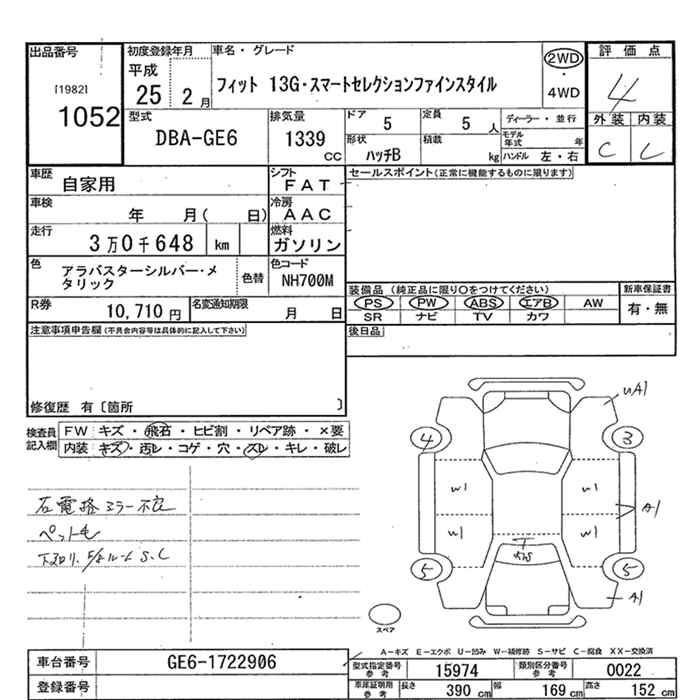 出品番号
[1982]
1052
初度登録年月
平成
25 2月
車名・グレード
フィット 13G・スマートセレクションファインスタイル
2WD
・
4WD
評価点
4
外装 内装
C C
型式
DBA-GE6
排気量
1339
CC
ドア
5
定員
5 人
ディーラー・並行
モデル年式 年
形状
ハッチB
積載
kg
ハンドル 左・右
車歴
自家用
シフト
FAT
車検
年 月( 日)
冷房
AAC
走行
3万0千648 km
燃料
ガソリン
色
アラバスターシルバー・メタリック
色替
色コード
NH700M
R券
10,710 円
名変通知期限
月 日
セールスポイント(正常に機能するものに限ります)
装備品 (純正品に限り○をつけてください)
PS PW ABS エアB AW
SR ナビ TV カワ
新車保証書
有・無
後日品
注意事項申告欄(不具合内容等は具体的に記入して下さい)
修復歴 有〔箇所 〕
検査員記入欄
FW キズ・飛石・ヒビ割・リペア跡・×要
内装 キズ・汚レ・コゲ・穴・スレ・キレ・破レ
左電格ミラー不良
ペット毛
下スリ
S.C
uA1
4
3
W1
W1
A1
W1
W1
5
5
A1
スペア
A-キズ E-エクボ U-凹み W-補修跡 S-サビ C-腐食 XX-交換済
車台番号
GE6-1722906
登録番号
型式指定番号参考
15974
類別区分番号参考
0022
車庫証明用参考
長さ 390 cm
幅 169 cm
高さ 152 cm